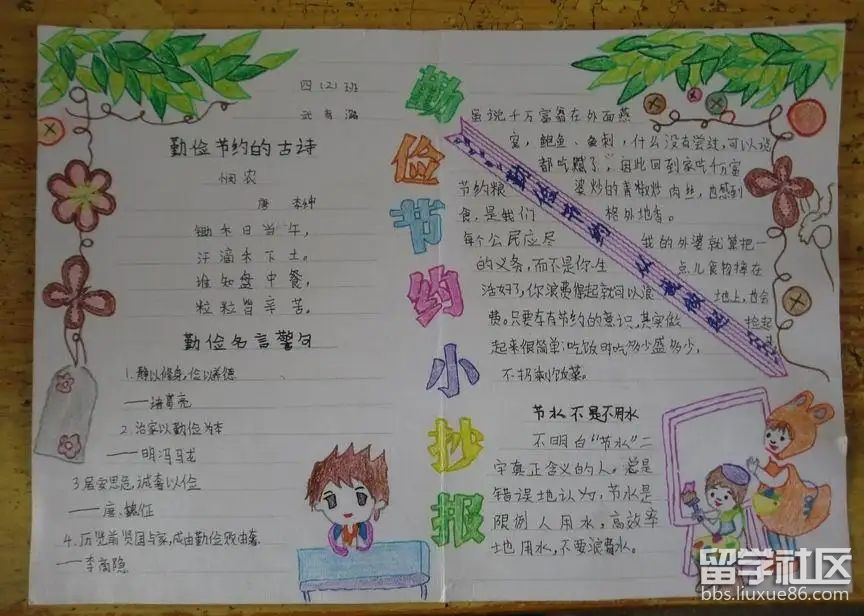 四(2)班
勤俭节约的古诗
悯农
唐 李绅
锄禾日当午,
汗滴禾下土。
谁知盘中餐,
粒粒皆辛苦。
勤俭名言警句
1.静以修身,俭以养德
——诸葛亮
2.治家以勤俭为本
——明冯马龙
3.居安思危,诫奢以俭
——唐、魏征
4、历览前贤国与家,成由勤俭败由奢
——李商隐
勤俭节约小抄报
虽说千万富翁在外面燕
窝,鲍鱼、鱼刺,什么没有尝过,可以说
都吃腻了,
节约粮
婆炒的青椒炒肉丝,也感到
食,是我们
格外地香。
每个公民应尽
我的外婆就算把一
的义务,而不是你生
点儿食物掉在
活好了,你浪费得起就可以浪
地上,也会
费。只要有节约的意识,其实做
捡起
起来很简单:吃饭时吃多少盛多少,
不扔剩饭菜。
节水不是不用水
不明白"节水"二
字真正含义的人。总是
错误地认为,节水是
限制人用水,高效率
地用水,不要浪费水。
留学社区
bbs.liuxue86.com